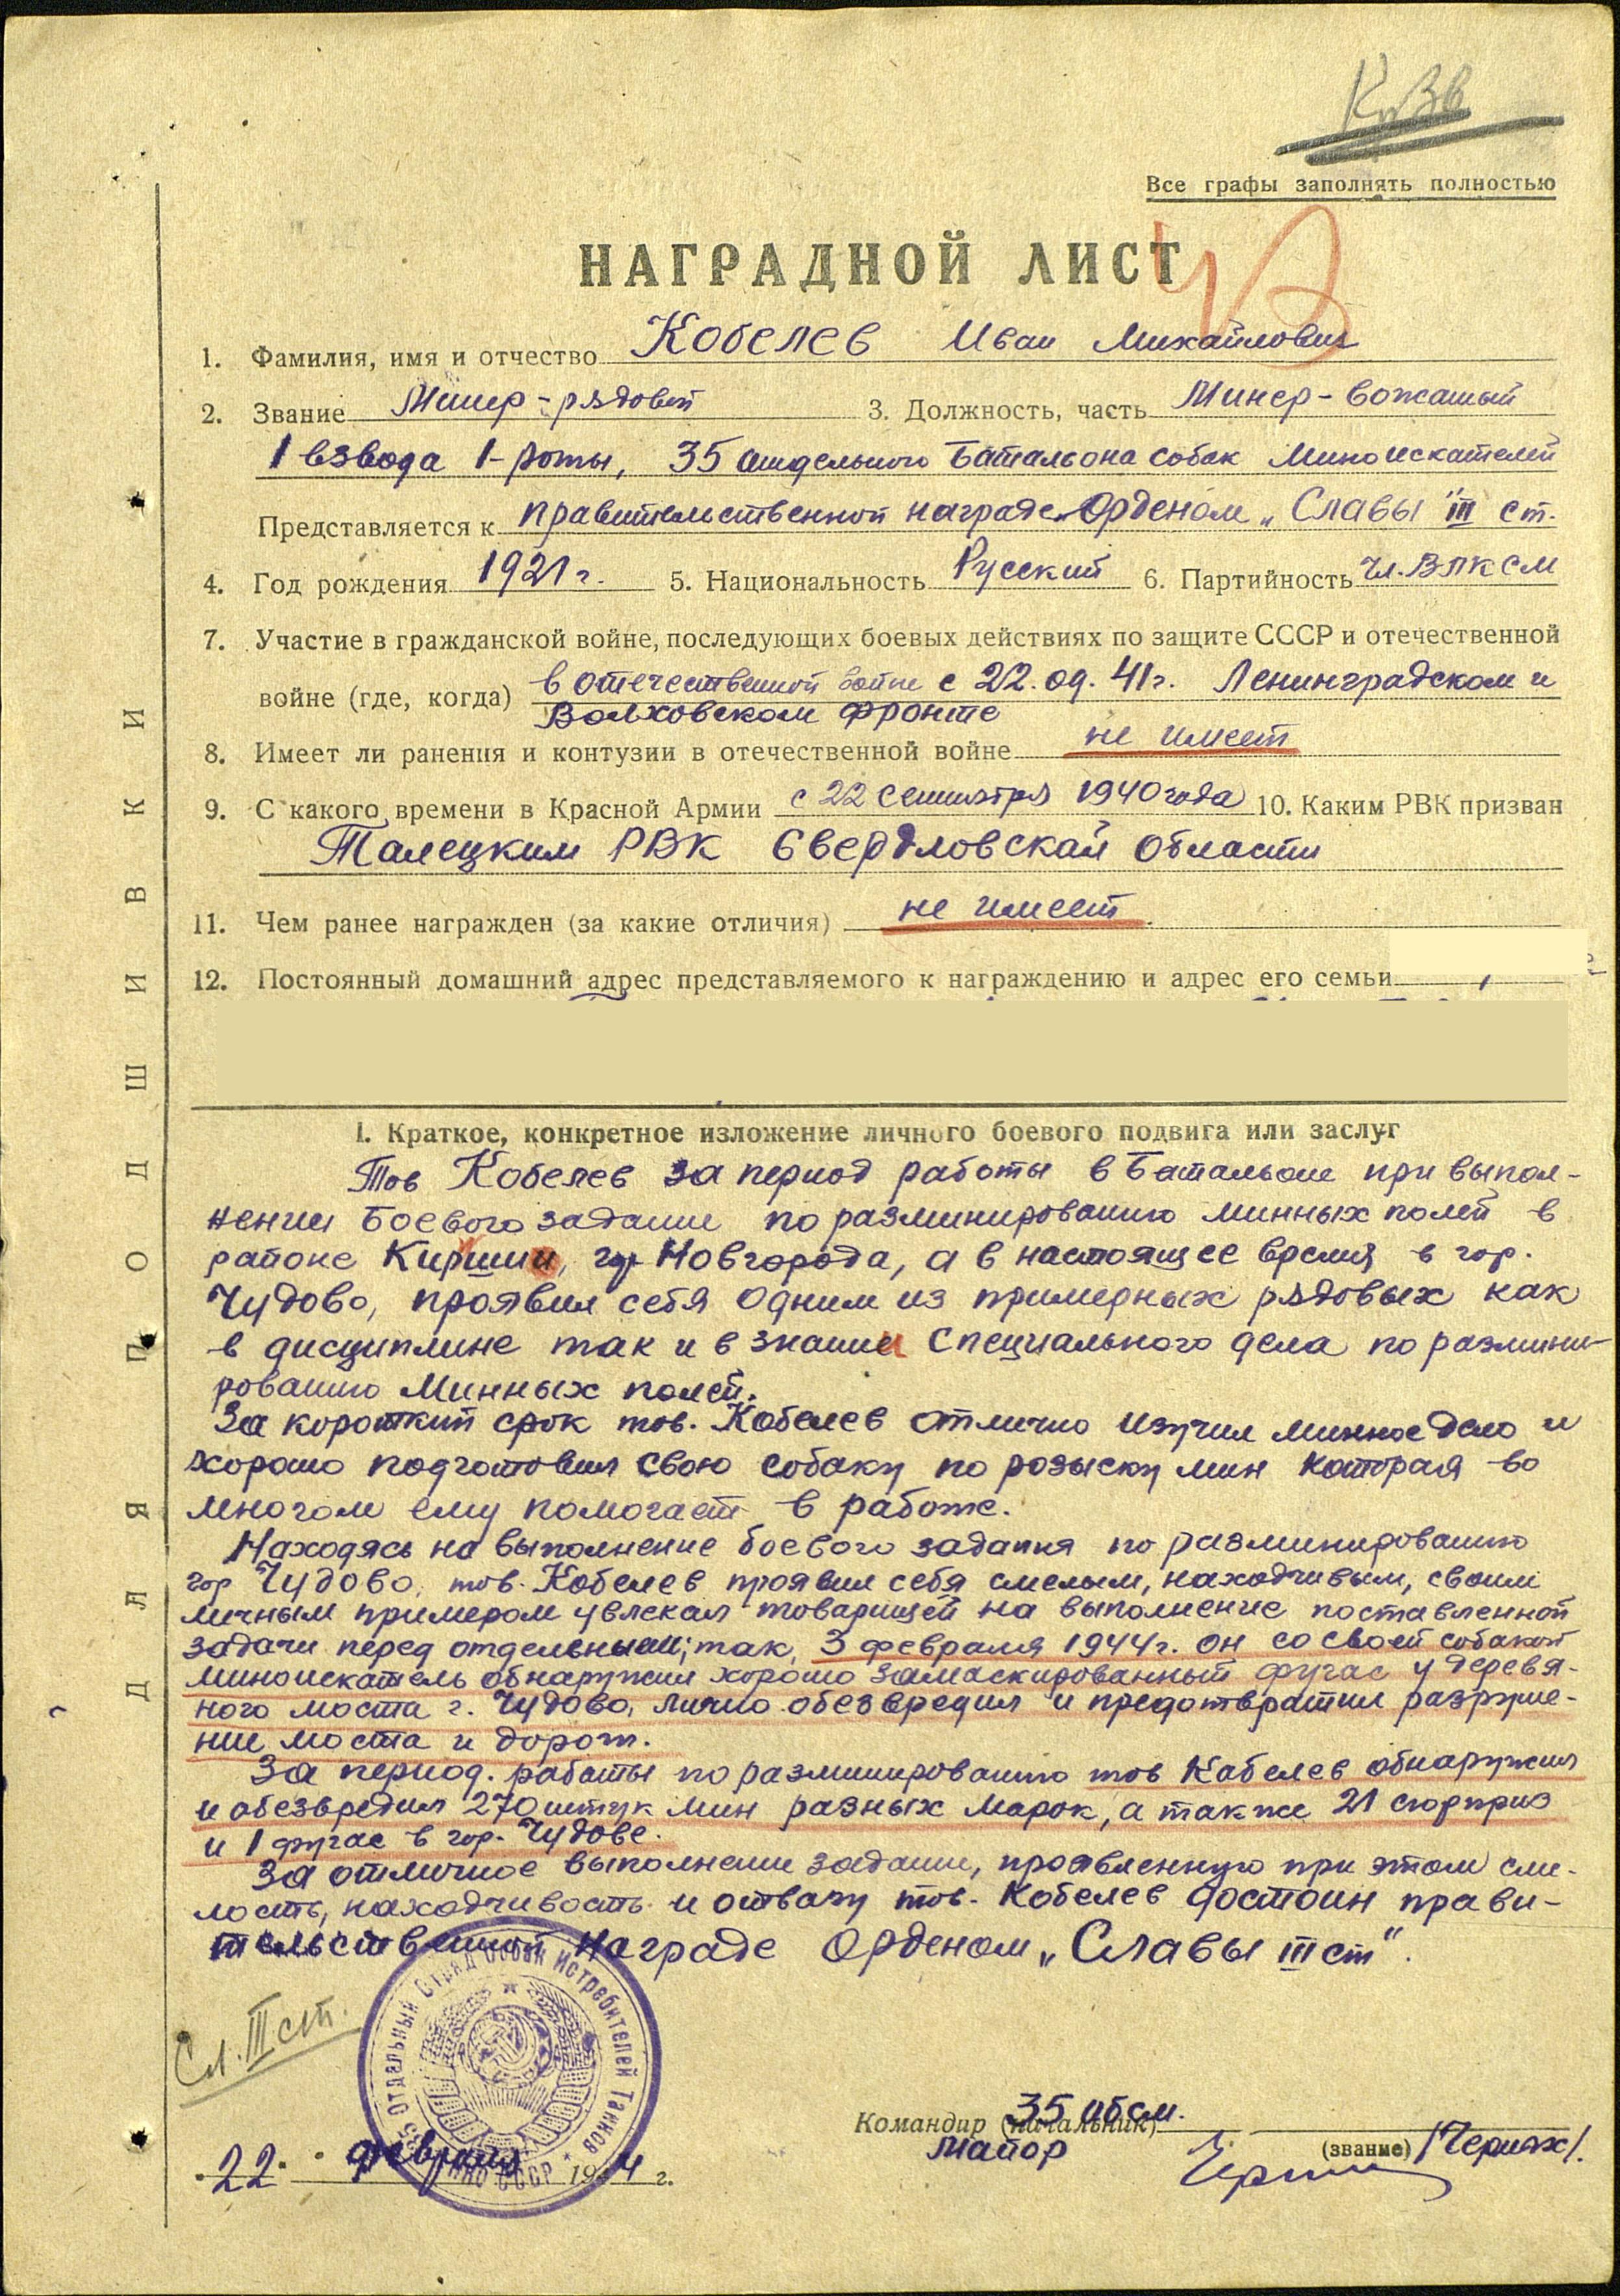 КпЗв
Все графы заполнять полностью
НАГРАДНОЙ ЛИСТ
1. Фамилия, имя и отчество Кобелев Иван Михайлович
2. Звание Минер-рядовой 3. Должность, часть Минер-вожатый
1 взвода 1-роты, 35 отдельного Батальона собак Миноискателей
Представляется к правительственной награде Орденом „Славы" III ст.
4. Год рождения 1921 г. 5. Национальность Русский 6. Партийность чл. ВЛКСМ
7. Участие в гражданской войне, последующих боевых действиях по защите СССР и отечественной
войне (где, когда) в отечественной войне с 22.09.41г. Ленинградском и
Волховском фронте
8. Имеет ли ранения и контузии в отечественной войне не имеет
9. С какого времени в Красной Армии с 22 сентября 1940 года 10. Каким РВК призван
Талецким РВК Свердловской области
11. Чем ранее награжден (за какие отличия) не имеет
12. Постоянный домашний адрес представляемого к награждению и адрес его семьи
I. Краткое, конкретное изложение личного боевого подвига или заслуг
Тов Кобелев за период работы в Батальоне при выпол-
нении Боевого задании по разминированию минных полей в
районе Киришии, гор Новгорода, а в настоящее время в гор.
Чудово, проявил себя одним из примерных рядовых как
в дисциплине так и в знании специального дела по размини-
рованию Минных полей.
За короткий срок тов. Кобелев отлично изучил минное дело и
хорошо подготовил свою собаку по розыску мин которая во
многом ему помогает в работе.
Находясь на выполнение боевого задания по разминированию
гор Чудово, тов. Кобелев проявил себя смелым, находчивым, своим
личным примером увлекал товарищей на выполнение поставленной
задачи перед отделеныем; так, 3 февраля 1944г. он со своей собакой
миноискатель обнаружил хорошо замаскированный фугас у деревя-
ного моста г. Чудово, лично обезвредил и предотвратил разруше-
ние моста и дорог.
За период. работы по разминированию тов Кабелев обнаружил
и обезвредил 270 штук мин разных марок, а также 21 сюрприз
и 1 фугас в гор. Чудове.
За отличное выполнение задании, проявленную при этом сме-
лость, находчивость и отвагу тов. Кобелев достоин прави-
тельственной награде Орденом „Славы III ст".
Сл. III ст.
35 Отдельный Отряд Собак Истребителей Танков
НКО СССР
35 обсм.
Командир (начальник)
Майор (звание) /Черняк/.
22 февраля 1944 г.
ДЛЯ ПОДШИВКИ